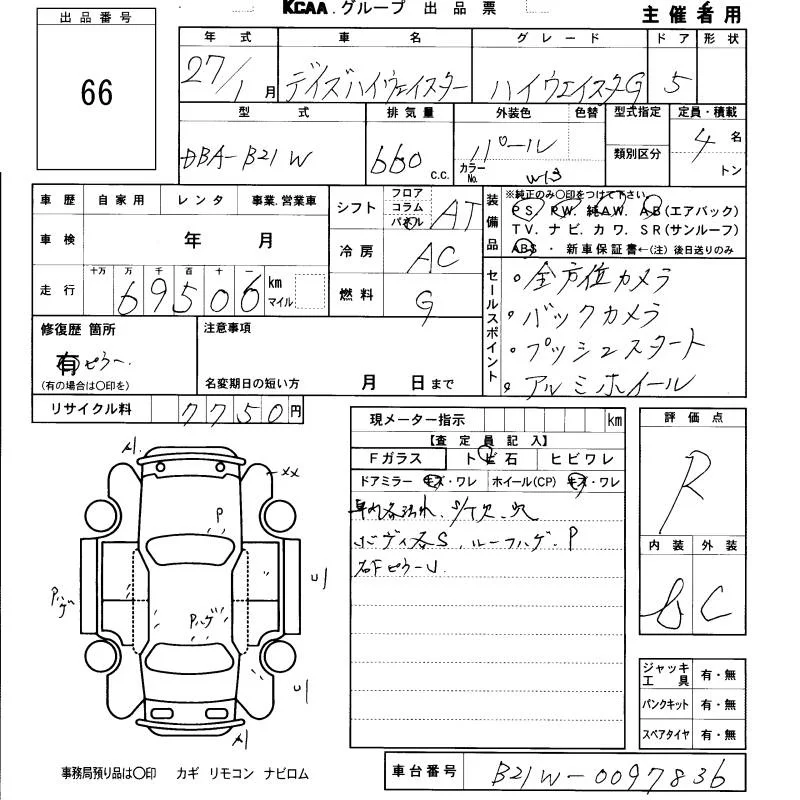 KCAA.グループ 出品票
主催者用
出品番号
66
年式 車名 グレード ドア 形状
27/1月 デイズハイウェイスター ハイウエイスターG 5
型式 排気量 外装色 色替 型式指定 定員・積載
DBA-B21W 660 c.c. パール カラーNo. 類別区分 4名
トン
車歴 自家用 レンタ 事業.営業車
シフト フロア コラム パネル AT
装備品
※純正のみ〇印をつけて下さい
PS. PW. 純AW. AB(エアバック)
TV. ナビ. カワ. SR(サンルーフ)
ABS ・ 新車保証書←(注) 後日送りのみ
車検 年 月
冷房 AC
走行 十万 万 千 百 十 一
69506 km マイル
燃料 G
セールスポイント
・全方位カメラ
・バックカメラ
・プッシュスタート
・アルミホイール
修復歴 箇所
有 ピラー
(有の場合は〇印を)
注意事項
名変期日の短い方 月 日まで
リサイクル料 7750円
現メーター指示 km
【査定員記入】
Fガラス トビ石 ヒビワレ
ドアミラー キズ・ワレ ホイール(CP) キズ・ワレ
ルーフハゲ. P
右FピラーU
評価点
R
内装 外装
C
A1
XX
P
Pハゲ
U1
Pハゲ
U1
A1
ジャッキ工具 有・無
パンクキット 有・無
スペアタイヤ 有・無
事務局預り品は〇印 カギ リモコン ナビロム
車台番号 B21W-0097836